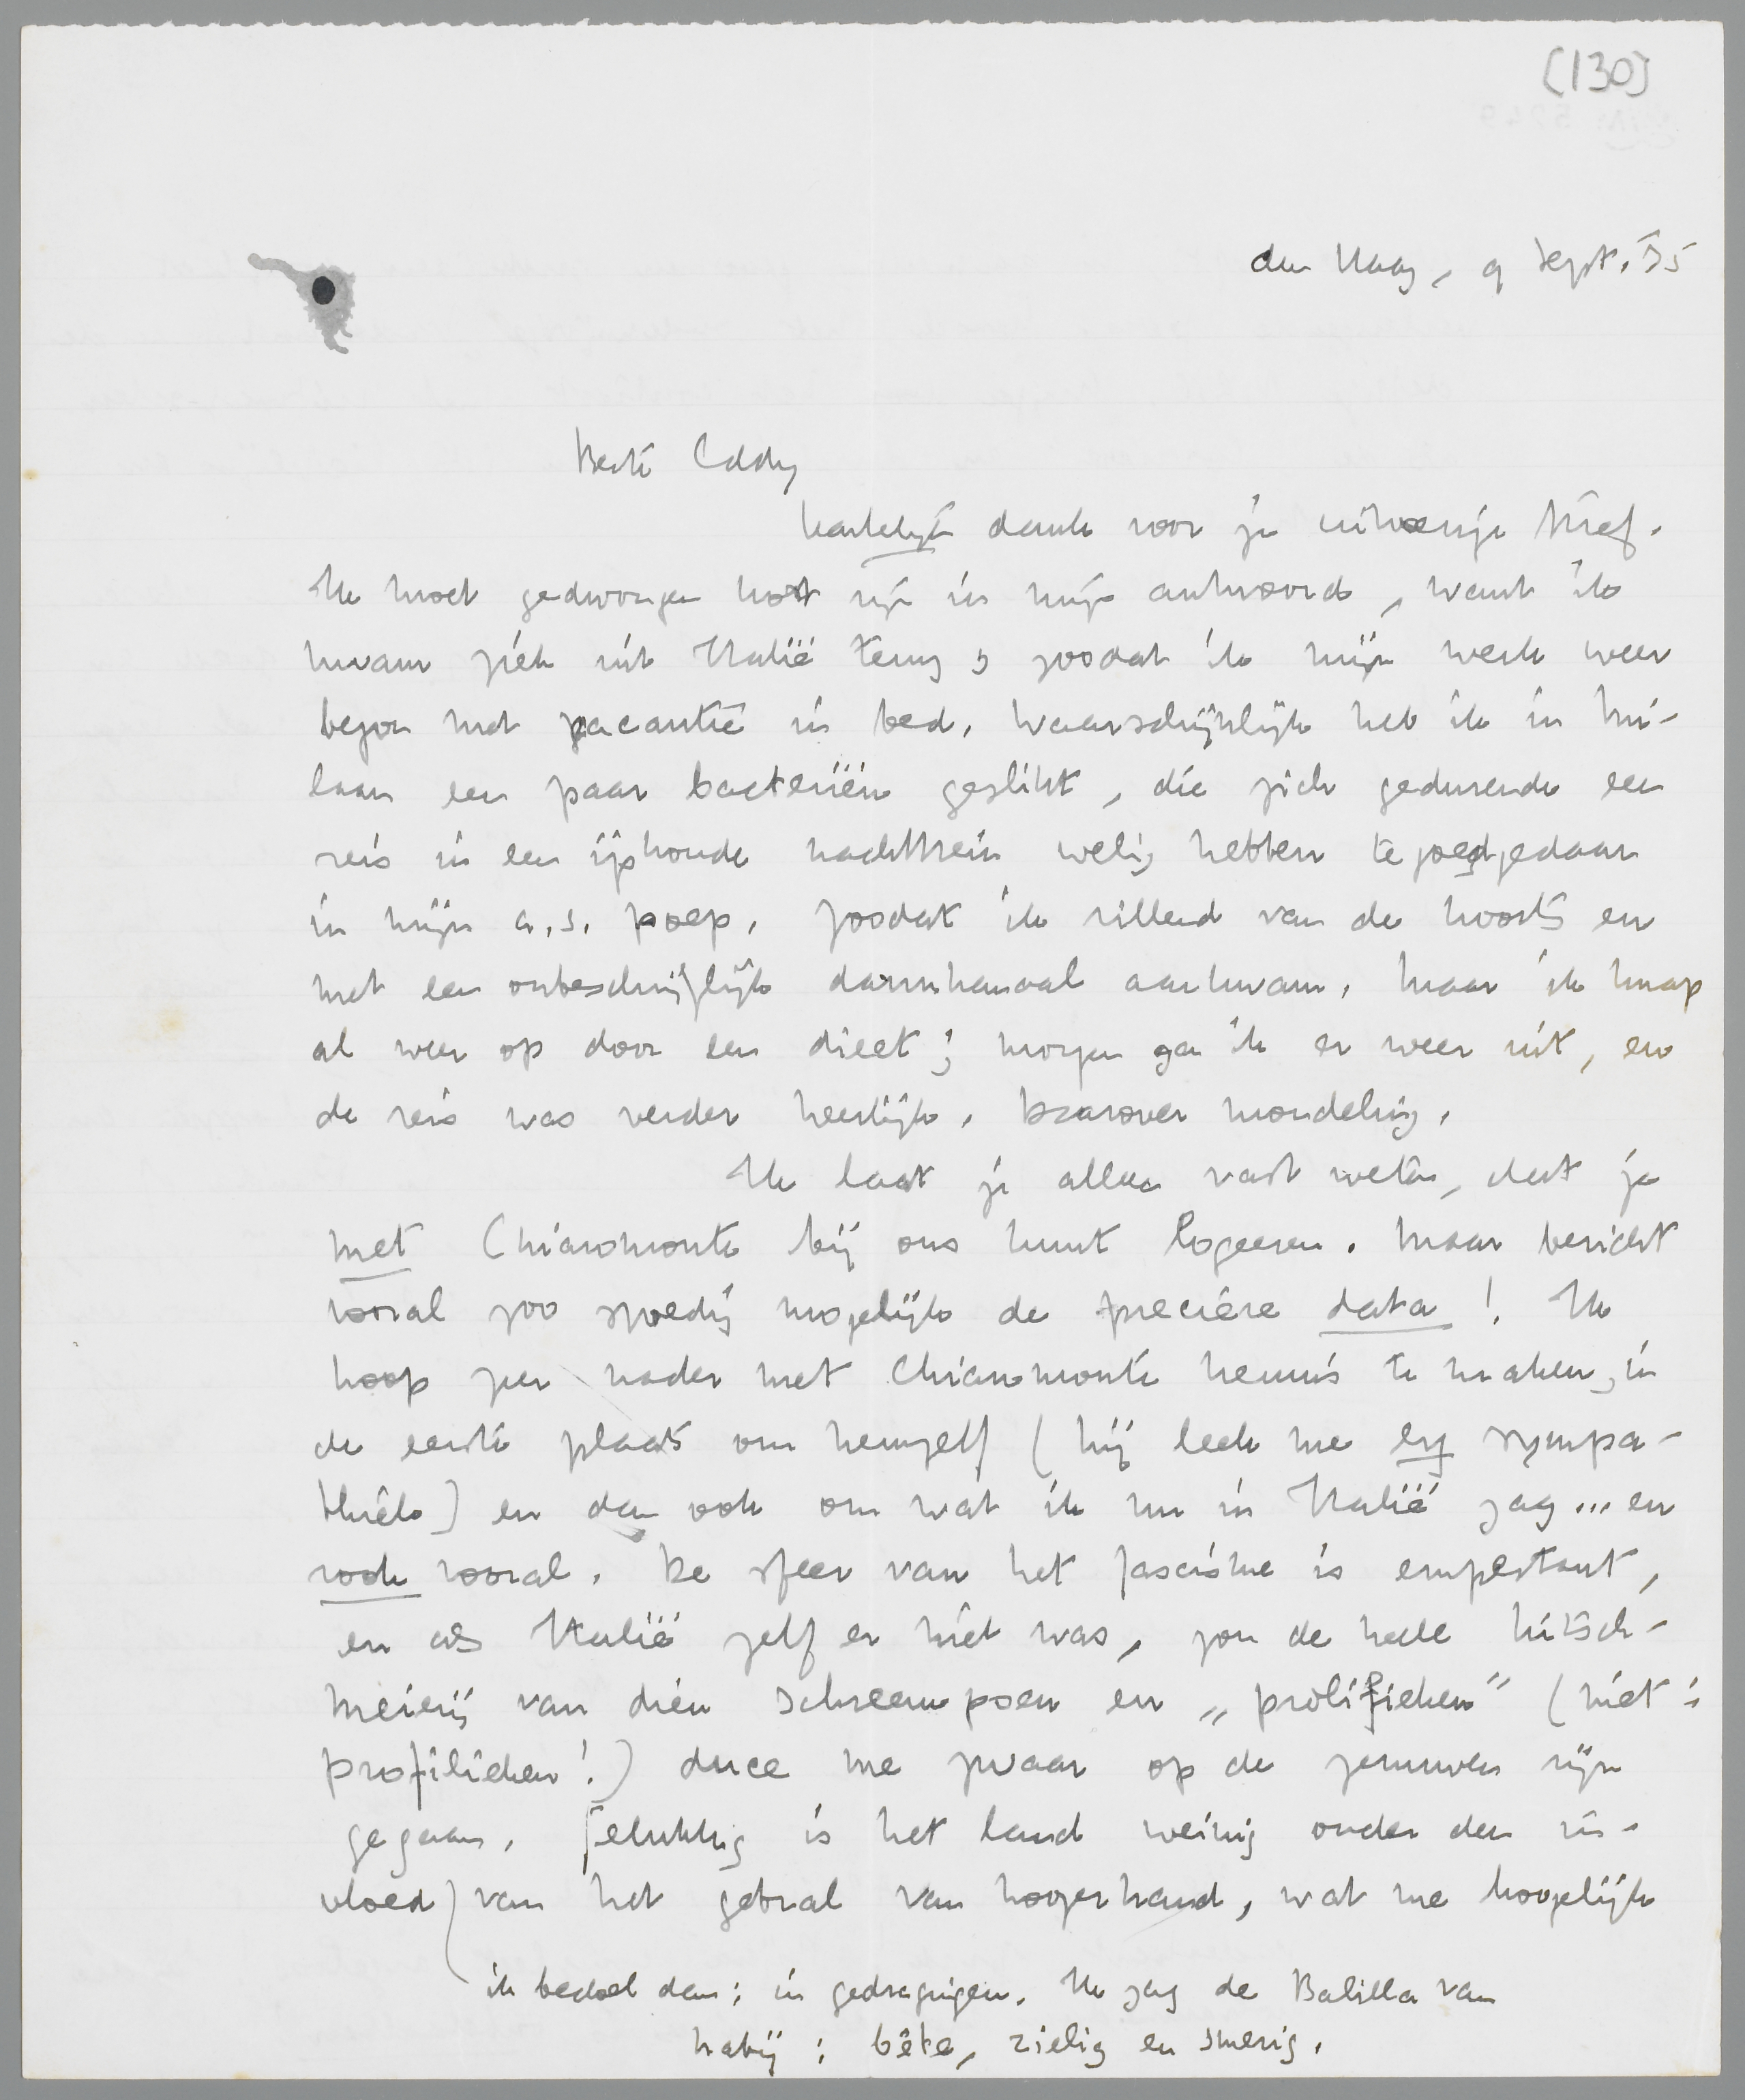 [130]
den Haag, 9 Sept. '35
Beste Eddy
hartelijk dank voor je uitvoerige brief.
Ik moet gedwongen kort zijn in mijn antwoord, want ik
kwam ziek uit Italië terug, zoodat ik mijn werk weer
begon met vacantie in bed. Waarschijnlijk heb ik in Mi-
laan een paar bacteriën geslikt, die zich gedurende een
reis in een ijskoude nachttrein welig hebben tegoedgedaan
in mijn a.s. poep. Zoodat ik rillend van de koorts en
met een onbeschrijflijk darmkanaal aankwam. Maar ik knap
al weer op door een dieet; morgen ga ik er weer uit, en
de reis was verder heerlijk. Daarover mondeling.
Ik laat je alleen vast weten, dat je
met Chiaromonte bij ons kunt logeeren. Maar bericht
vooral zoo spoedig mogelijk de precieze data! Ik
hoop zeer nader met Chiaromonte kennis te maken, in
de eerste plaats om hemzelf (hij leek me erg sympa-
thiek) en dan ook om wat ik nu in Italië zag... en
rook vooral. De sfeer van het fascisme is empestant,
en als Italië zelf er niet was, zou de heele kitsch-
meierij van dien schreeuwpoen en „prolifieken" (niet:
profilieken!) duce me zwaar op de zenuwen zijn
gegaan. Gelukkig is het land weinig onder den in-
vloed) van het gebral van hoogerhand, wat me hoogelijk
ik bedoel dan: in gedragingen. Ik zag de Balilla van
nabij: bête, zielig en smerig.